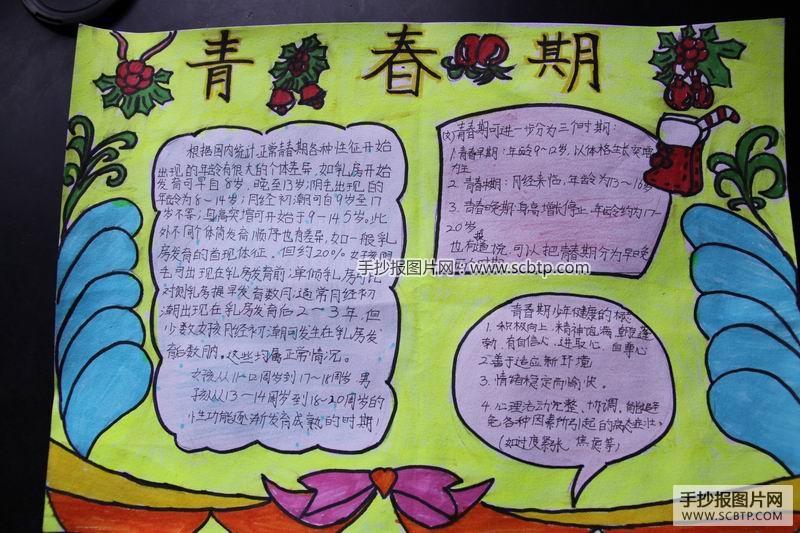 青春期
根据国内统计,正常青春期各种性征开始
出现的年龄有很大的个体差异,如乳房开始
发育可早自8岁,晚至13岁;阴毛出现的
年龄为8~14岁;月经初潮可自9岁至17
岁不等;身高突增可开始于9-14.5岁。此
外不同个体间发育顺序也有差异,如一般乳
房发育的首现体征,但约20%女孩阴
毛可出现在乳房发育前;单侧乳房可比
对侧乳房提早发育数月;通常月经初
潮出现在乳房发育后2~3年,但
少数女孩月经初潮可发生在乳房发
育后数月。这些均属正常情况。
女孩从11-12周岁到17~18周岁 男
孩从13~14周岁到18~20周岁的
性功能逐渐发育成熟的时期!
青春期可进一步分为三个时期:
1.青春早期:年龄9~12岁,以体格生长突增
为主
2.青春中期:月经来临,年龄为13~16岁
3.青春晚期:身高增长停止,年龄约为17-
20岁。
也有道说,可以把青春期分为早晚
我
青春期少年健康的标志
1.积极向上,精神饱满,朝气蓬
勃,有自信人,进取心,自尊心
2.善于适应新环境
3.情绪稳定而愉快。
4.心理活动完整、协调,能避
免各种因素所引起的病态症状。
(如过度紧张、焦虑等)
手抄报图片网 www.scbtp.com
手抄报图片网
WWW.SCBTP.COM